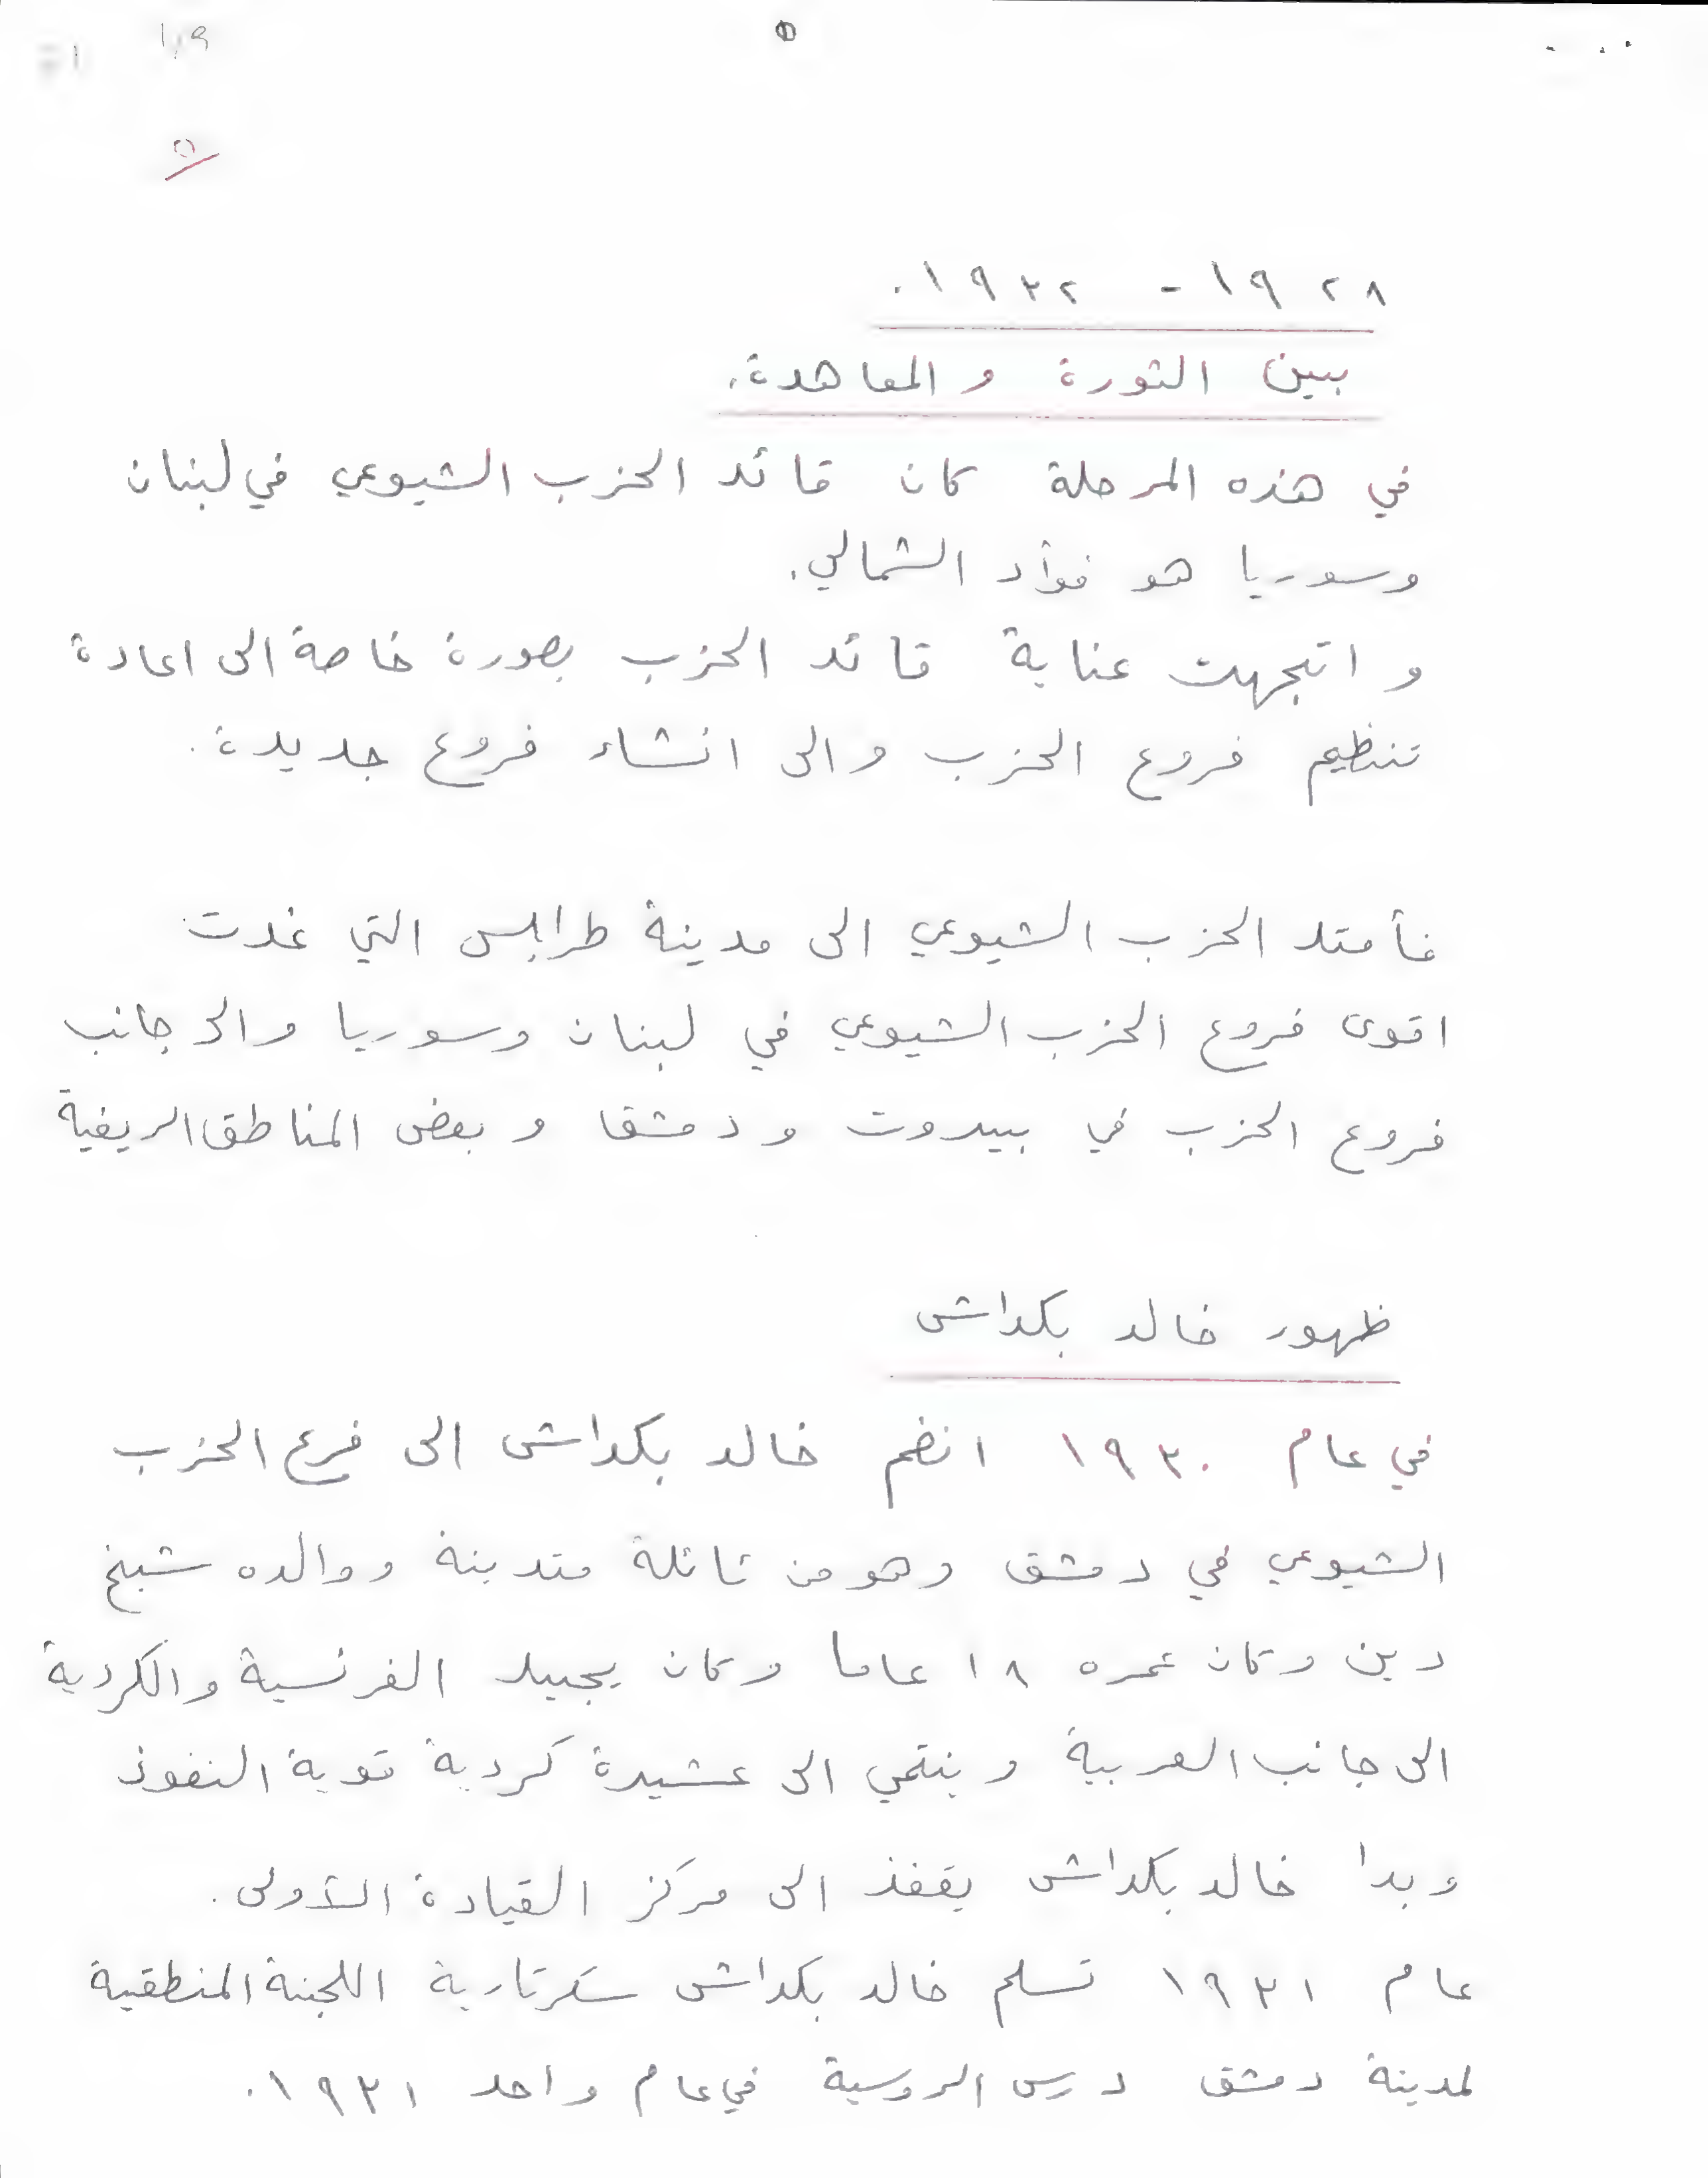 ١٩٢٨ - ١٩٣٢.
بين الثورة والمعاهدة.
في هذه المرحلة كان قائد الحزب الشيوعي في لبنان
وسوريا هو فؤاد الشمالي.
و اتجهت عناية قائد الحزب بصورة خاصة الى اعادة
تنظيم فروع الحزب والى انشاء فروع جديدة.
فأمتد الحزب الشيوعي الى مدينة طرابلس التي غدت
اقوى فروع الحزب الشيوعي في لبنان وسوريا والى جانب
فروع الحزب في بيروت ودمشق وبعض المناطق الريفية
ظهور خالد بكداش
في عام ١٩٣٠ انضم خالد بكداش الى فرع الحزب
الشيوعي في دمشق وهو من عائلة متدينة ووالده شيخ
دين وكان عمره ١٨ عاما وكان يجيد الفرنسية والكردية
الى جانب العربية وينتمي الى عشيرة كردية قوية النفوذ
وبدا خالد بكداش يقفذ الى مركز القيادة الأولى.
عام ١٩٣١ تسلم خالد بكداش سكرتارية اللجنة المنطقية
لمدينة دمشق درس الروسية في عام واحد ١٩٣١.